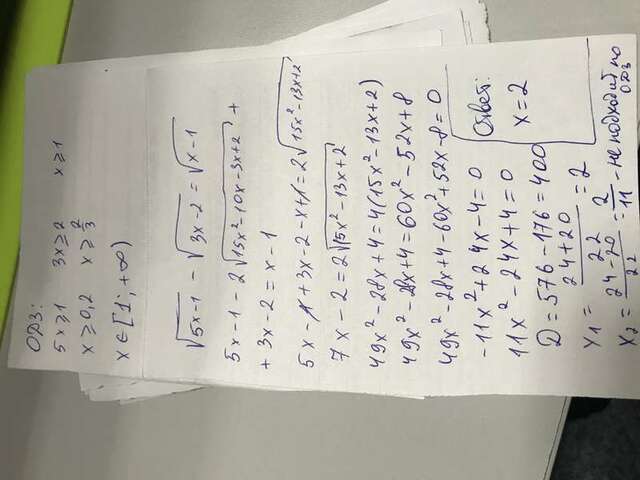 ОДЗ:
5x≥1 3x≥2 x≥1
x≥0,2 x≥2/3
x∈[1;+∞)
√5x-1 - √3x-2 = √x-1
5x-1-2√15x²-10x-3x+2 +
+3x-2=x-1
5x-1+3x-2-x+1=2√15x²-13x+2
7x-2=2√15x²-13x+2
49x²-28x+4=4(15x²-13x+2)
49x²-28x+4=60x²-52x+8
49x²-28x+4-60x²+52x-8=0
-11x²+24x-4=0
11x²-24x+4=0
D=576-176=400
x₁=24+20/22=2
x₂=24-20/22=2/11 - не подходит по ОДЗ
Ответ:
x=2